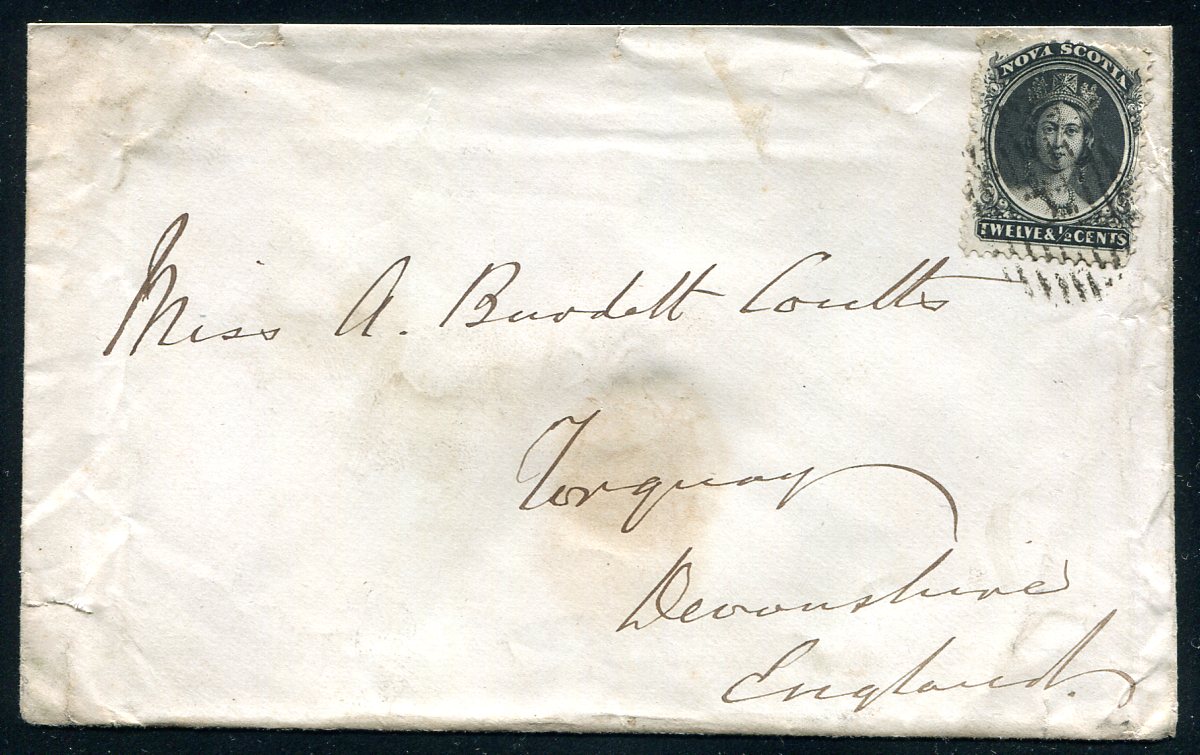 NOVA SCOTIA
TWELVE & 1/2 CENTS
Miss A. Burdett Coutts
Torquay
Devonshire
England.